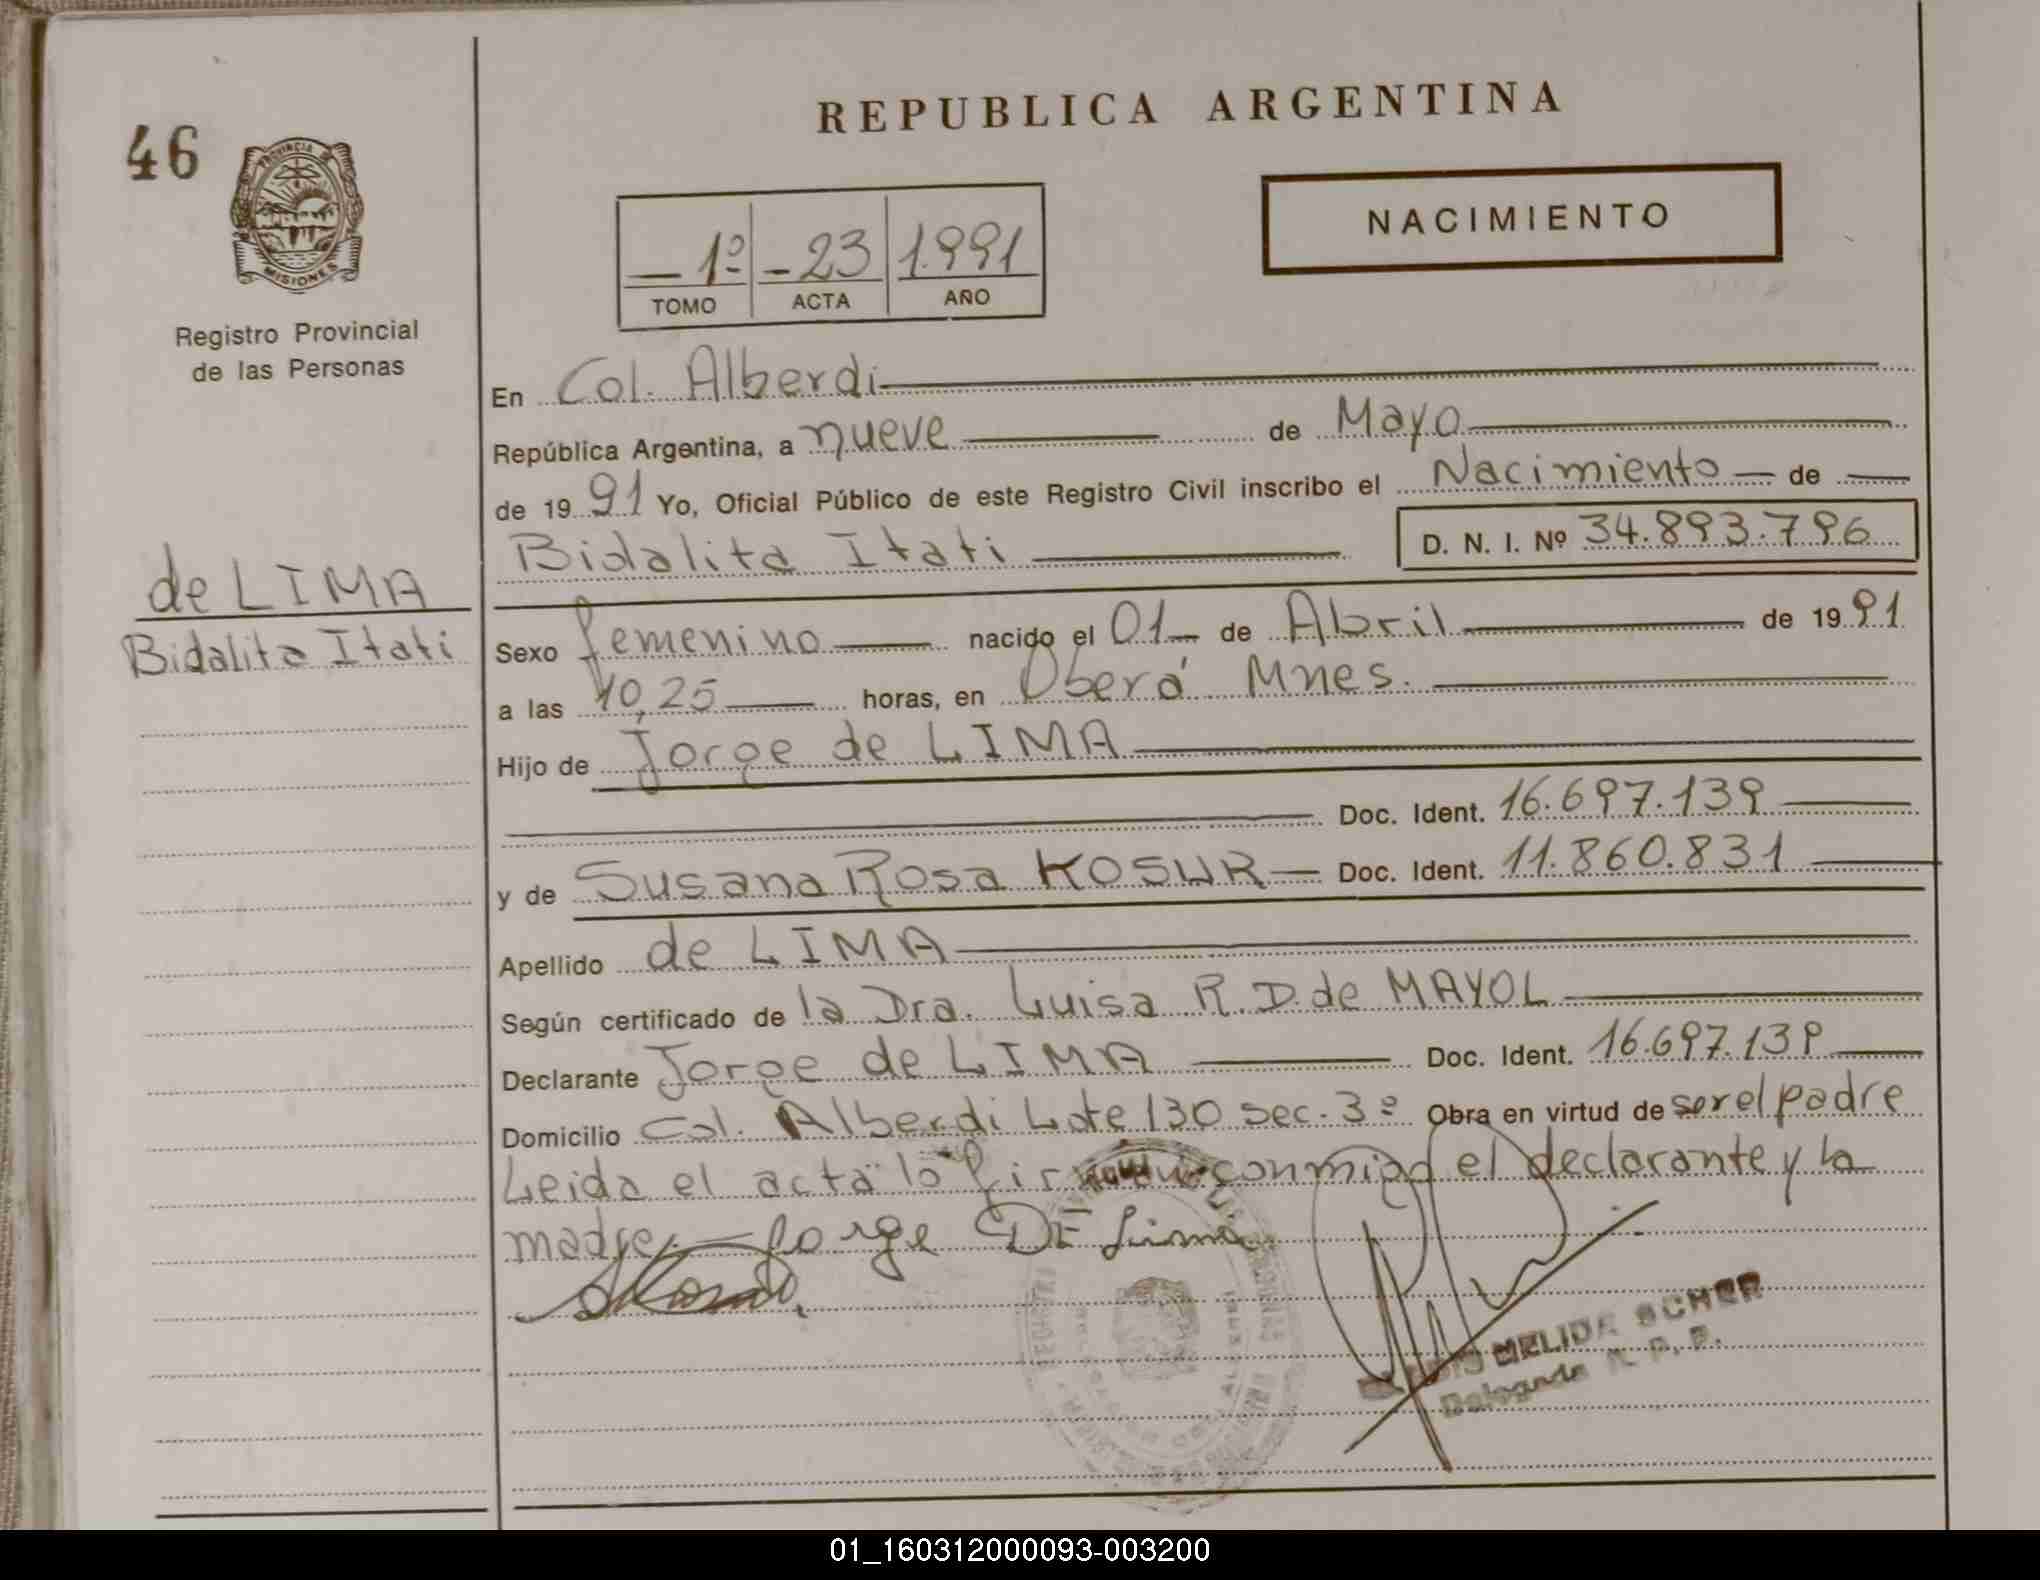 REPUBLICA ARGENTINA
46
PROVINCIA DE
MISIONES
Registro Provincial
de las Personas
NACIMIENTO
1º - 23 1.991
TOMO ACTA AÑO
En Col. Alberdi
República Argentina, a nueve de Mayo
de 19 91 Yo, Oficial Público de este Registro Civil inscribo el Nacimiento de
Bidalita Itati D. N. I. Nº 34.893.796
de LIMA
Bidalita Itati
Sexo femenino nacido el 01 de Abril de 19 91
a las 10,25 horas, en Oberá Mnes.
Hijo de Jorge de LIMA
Doc. Ident. 16.697.139
y de Susana Rosa KOSUR Doc. Ident. 11.860.831
Apellido de LIMA
Según certificado de la Dra. Luisa R.D. de MAYOL
Declarante Jorge de LIMA Doc. Ident. 16.697.139
Domicilio Col. Alberdi Lote 130 sec. 3º Obra en virtud de ser el padre
Leida el acta lo conmigo el declarante y la
madre. Jorge DE Lima
NELIDA SCHER
Delegada R. P. P.
01_160312000093-003200